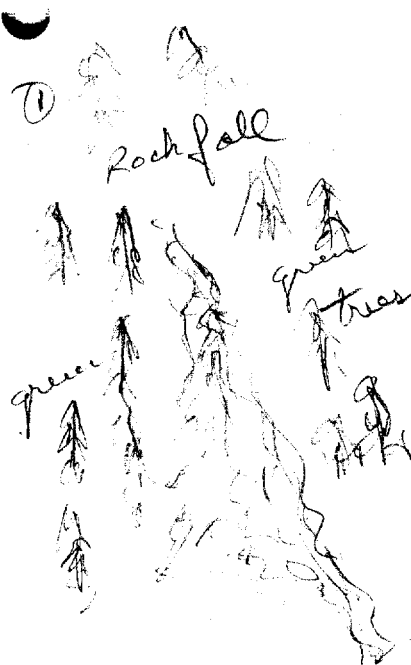 ①
Rockfall
green
trees
green